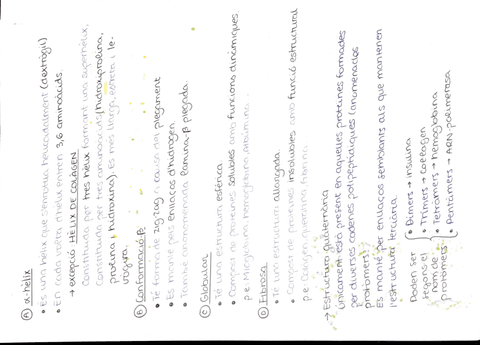 Ⓐ α-hèlix
• És una hèlix que s'enrotlla helicoïdalment (dextrògir)
• En cada volta d'hèlix entren 3,6 aminoàcids.
→ excepció HÈLIX DE COL·LAGEN
Constituïda per tres hèlix formant una superhèlix,
constituïda per tres aminoàcids (hidroxiprolina,
prolina i hidroxina). És més llarga, estreta i le-
vògira.
Ⓑ Conformació-β
• Té forma de zig-zag a causa del plegament
• Es manté pels enllaços d'hidrogen
• També anomenada làmina β plegada.
Ⓒ Globular
• Té una estructura esfèrica
• Compost de proteïnes solubles amb funcions dinàmiques
p.e. Mioglobina, hemoglobina, albúmina...
Ⓓ Fibrosa
• Té una estructura allargada
• Compost de proteïnes insolubles amb funció estructural
p.e. Col·lagen, queratina, fibrina
→ Estructura quaternària
Únicament està present en aquelles proteïnes formades
per diverses cadenes polipeptídiques (anomenades
protòmers).
Es manté per enllaços semblants als que mantenen
l'estructura terciària.
Poden ser segons el nombre de protòmers
• Dímers → insulina
• Trímers → col·lagen
• Tetràmers → hemoglobina
• Pentàmers → ARN-polimerasa